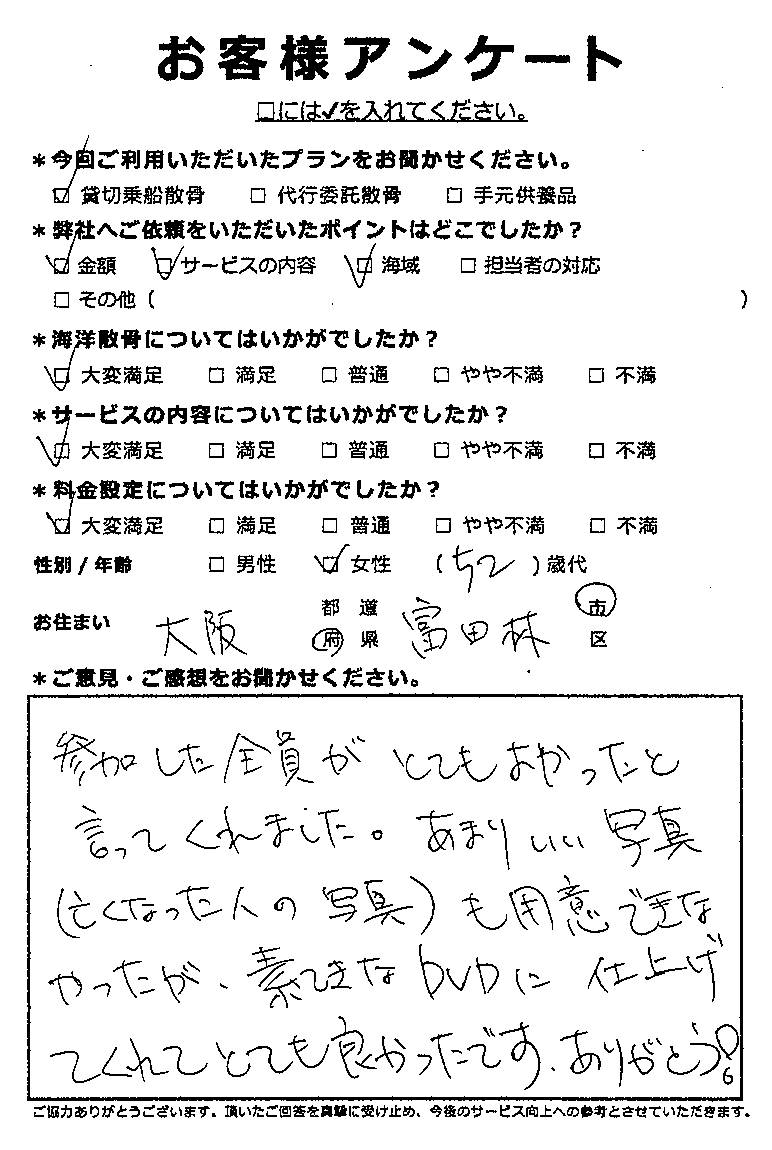 お客様アンケート
□には✓を入れてください。
＊今回ご利用いただいたプランをお聞かせください。
☑ 貸切乗船散骨　□ 代行委託散骨　□ 手元供養品
＊弊社へご依頼をいただいたポイントはどこでしたか？
☑ 金額　☑ サービスの内容　☑ 海域　□ 担当者の対応
□ その他（　）
＊海洋散骨についてはいかがでしたか？
☑ 大変満足　□ 満足　□ 普通　□ やや不満　□ 不満
＊サービスの内容についてはいかがでしたか？
☑ 大変満足　□ 満足　□ 普通　□ やや不満　□ 不満
＊料金設定についてはいかがでしたか？
☑ 大変満足　□ 満足　□ 普通　□ やや不満　□ 不満
性別 / 年齢　□ 男性　☑ 女性　（52）歳代
お住まい　大阪　都 道 府 県　富田林　市 区
＊ご意見・ご感想をお聞かせください。
参加した全員が とてもよかったと
言ってくれました。あまりいい 写真
(亡くなった人の 写真) も用意できな
かったが、素てきな DVDに 仕上げ
てくれてとても良かったです、ありがとう!
ご協力ありがとうございます。頂いたご回答を真摯に受け止め、今後のサービス向上への参考とさせていただきます。